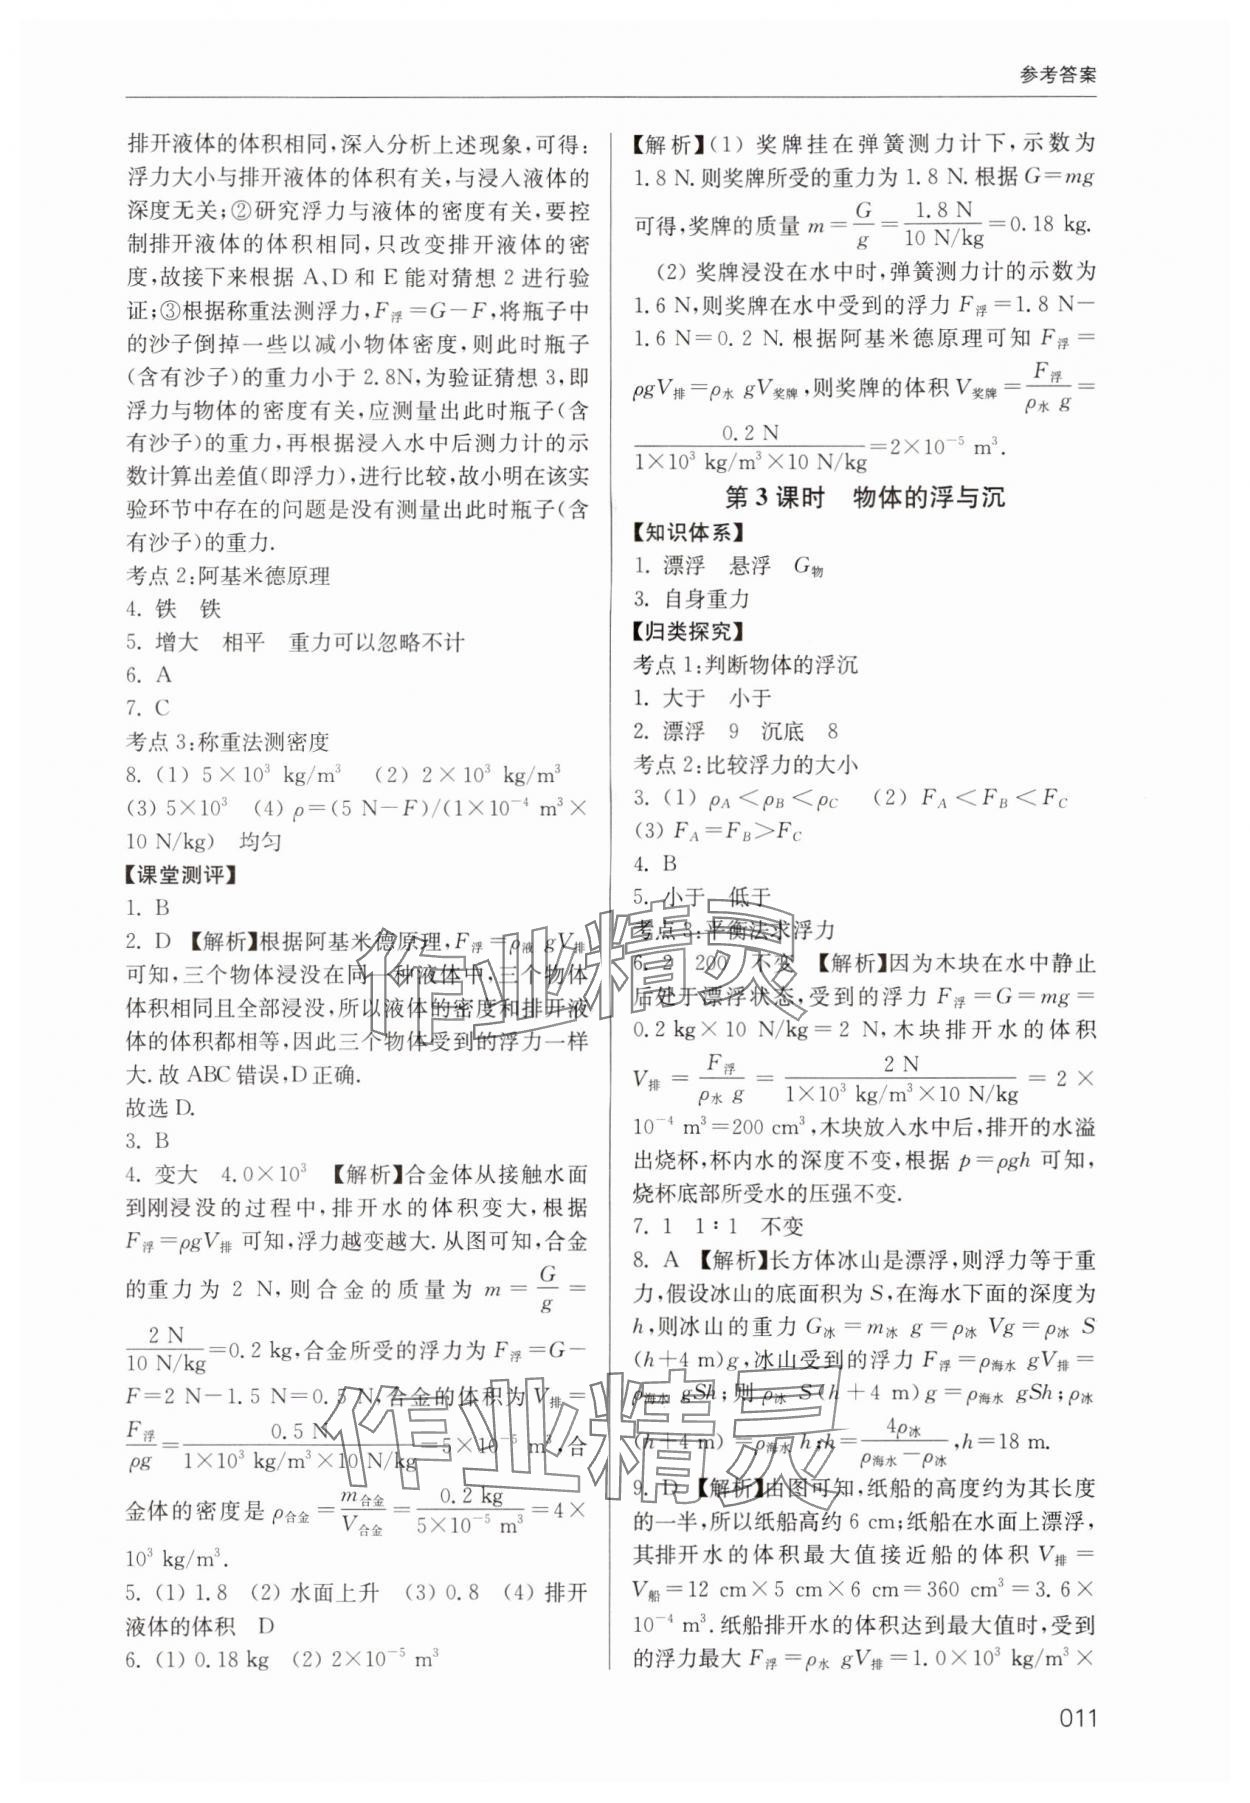 参考答案
排开液体的体积相同,深入分析上述现象,可得:
浮力大小与排开液体的体积有关,与浸入液体的
深度无关;②研究浮力与液体的密度有关,要控
制排开液体的体积相同,只改变排开液体的密
度,故接下来根据 A、D 和 E 能对猜想 2 进行验
证;③根据称重法测浮力,F浮=G-F,将瓶子中
的沙子倒掉一些以减小物体密度,则此时瓶子
(含有沙子)的重力小于 2.8N,为验证猜想 3,即
浮力与物体的密度有关,应测量出此时瓶子(含
有沙子)的重力,再根据浸入水中后测力计的示
数计算出差值(即浮力),进行比较,故小明在该实
验环节中存在的问题是没有测量出此时瓶子(含
有沙子)的重力.
考点 2:阿基米德原理
4. 铁 铁
5. 增大 相平 重力可以忽略不计
6. A
7. C
考点 3:称重法测密度
8. (1) 5×10³ kg/m³ (2) 2×10³ kg/m³
(3) 5×10³ (4) ρ=(5 N-F)/(1×10⁻⁴ m³×
10 N/kg) 均匀
【课堂测评】
1. B
2. D 【解析】根据阿基米德原理,F浮=ρ液 gV排
可知,三个物体浸没在同一种液体中,三个物体
体积相同且全部浸没,所以液体的密度和排开液
体的体积都相等,因此三个物体受到的浮力一样
大.故 ABC 错误,D 正确.
故选 D.
3. B
4. 变大 4.0×10³ 【解析】合金体从接触水面
到刚浸没的过程中,排开水的体积变大,根据
F浮=ρgV排 可知,浮力越变越大.从图可知,合金
的重力为 2 N,则合金的质量为 m=G/g=
2 N/10 N/kg=0.2 kg,合金所受的浮力为 F浮=G-
F=2 N-1.5 N=0.5 N,合金的体积为 V排=
F浮/ρg=0.5 N/1×10³ kg/m³×10 N/kg=5×10⁻⁵ m³,合
金体的密度是 ρ合金=m合金/V合金=0.2 kg/5×10⁻⁵ m³=4×
10³ kg/m³.
5. (1) 1.8 (2) 水面上升 (3) 0.8 (4) 排开
液体的体积 D
6. (1) 0.18 kg (2) 2×10⁻⁵ m³
【解析】(1) 奖牌挂在弹簧测力计下,示数为
1.8 N.则奖牌所受的重力为 1.8 N.根据 G=mg
可得,奖牌的质量 m=G/g=1.8 N/10 N/kg=0.18 kg.
(2) 奖牌浸没在水中时,弹簧测力计的示数为
1.6 N,则奖牌在水中受到的浮力 F浮=1.8 N-
1.6 N=0.2 N.根据阿基米德原理可知 F浮=
ρgV排=ρ水 gV奖牌,则奖牌的体积 V奖牌=F浮/ρ水 g=
0.2 N/1×10³ kg/m³×10 N/kg=2×10⁻⁵ m³.
第 3 课时 物体的浮与沉
【知识体系】
1. 漂浮 悬浮 G物
3. 自身重力
【归类探究】
考点 1:判断物体的浮沉
1. 大于 小于
2. 漂浮 9 沉底 8
考点 2:比较浮力的大小
3. (1) ρA<ρB<ρC (2) FA<FB<FC
(3) FA=FB>FC
4. B
5. 小于 低于
考点 3:平衡法求浮力
6. 2 200 不变 【解析】因为木块在水中静止
后处于漂浮状态,受到的浮力 F浮=G=mg=
0.2 kg×10 N/kg=2 N,木块排开水的体积
V排=F浮/ρ水 g=2 N/1×10³ kg/m³×10 N/kg=2×
10⁻⁴ m³=200 cm³,木块放入水中后,排开的水溢
出烧杯,杯内水的深度不变,根据 p=ρgh 可知,
烧杯底部所受水的压强不变.
7. 1 1∶1 不变
8. A 【解析】长方体冰山是漂浮,则浮力等于重
力,假设冰山的底面积为 S,在海水下面的深度为
h,则冰山的重力 G冰=m冰 g=ρ冰 Vg=ρ冰 S
(h+4 m)g,冰山受到的浮力 F浮=ρ海水 gV排=
ρ海水 gSh;则 ρ冰 S(h+4 m)g=ρ海水 gSh;ρ冰
(h+4 m)=ρ海水 h;h=4ρ冰/ρ海水-ρ冰,h=18 m.
9. D 【解析】由图可知,纸船的高度约为其长度
的一半,所以纸船高约 6 cm;纸船在水面上漂浮,
其排开水的体积最大值接近船的体积 V排=
V船=12 cm×5 cm×6 cm=360 cm³=3.6×
10⁻⁴ m³.纸船排开水的体积达到最大值时,受到
的浮力最大 F浮=ρ水 gV排=1.0×10³ kg/m³×
011
作业精灵
作业精灵